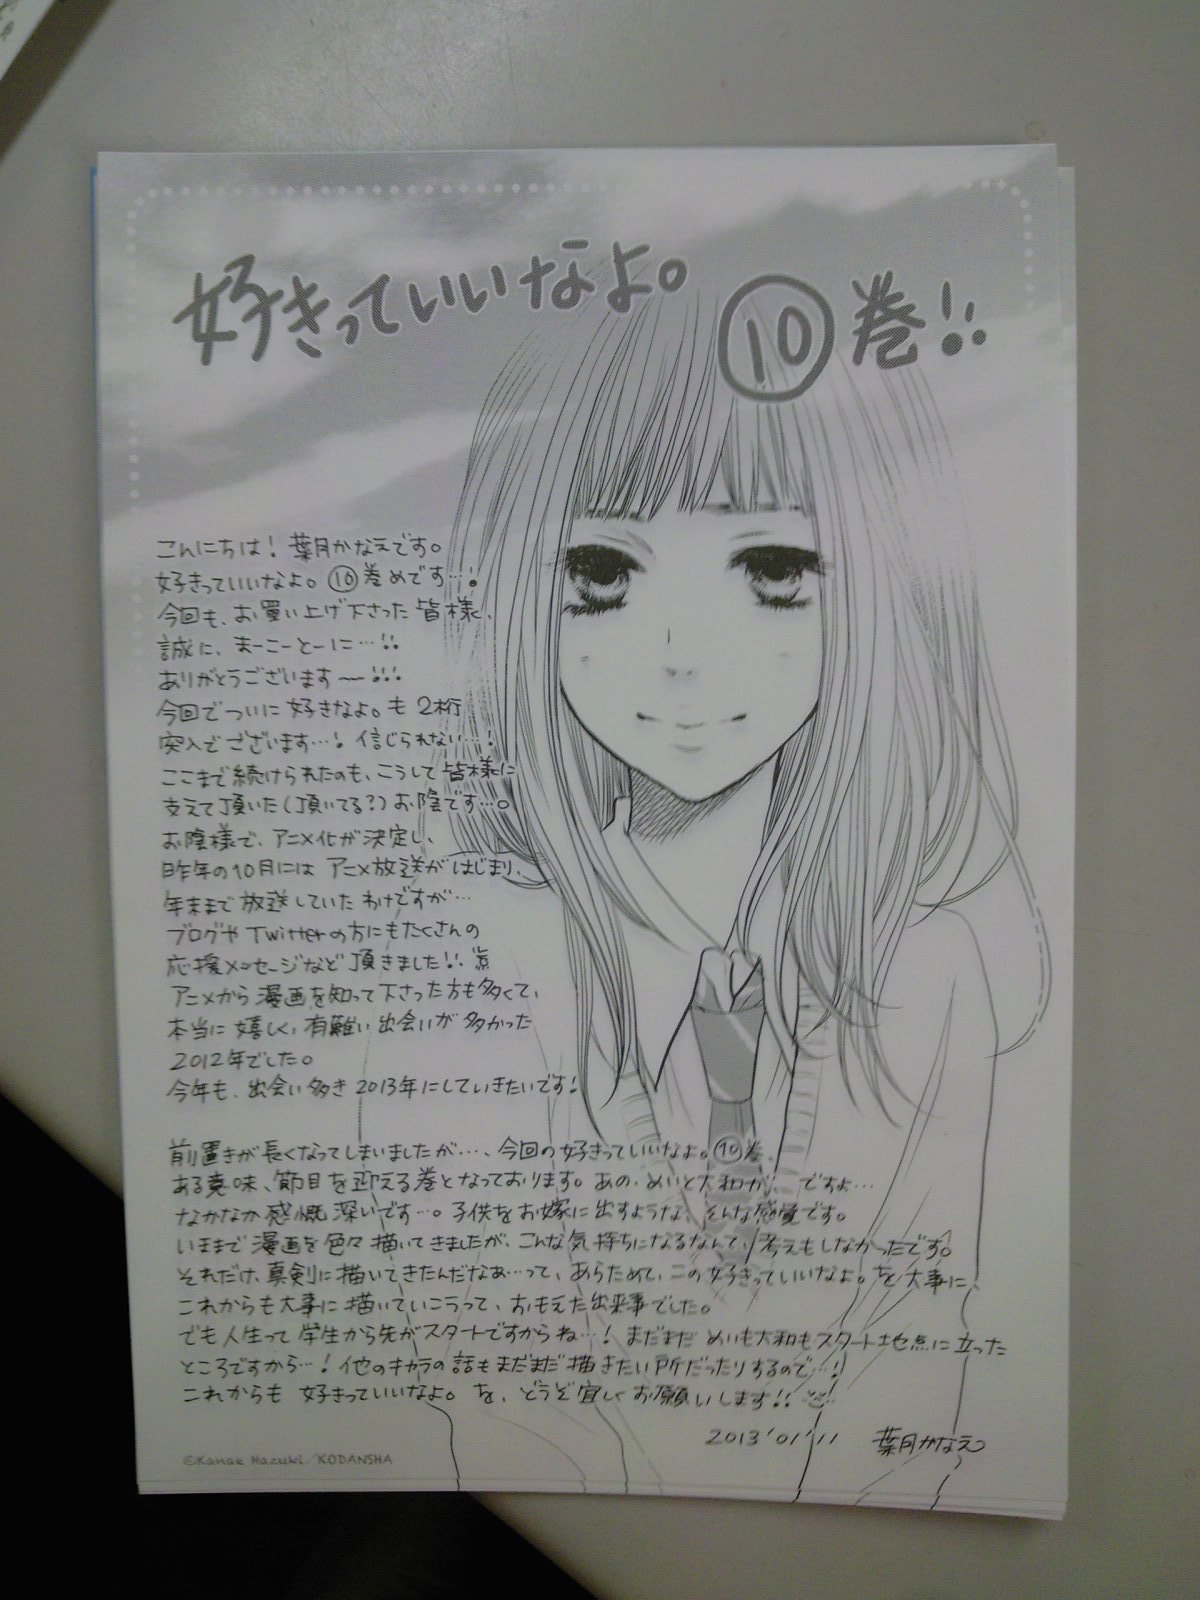 好きっていいなよ。⑩巻!!
こんにちは!葉月かなえです。
好きっていいなよ。⑩巻めです…!
今回も、お買い上げ下さった皆様、
誠に、まーこーとーに…!!
ありがとうございます〜!!!
今回でついに好きなよ。も2桁
突入でございます…!信じられない…!
ここまで続けられたのも、こうして皆様に
支えて頂いた(頂いてる?)お陰です…。
お陰様で、アニメ化が決定し、
昨年の10月にはアニメ放送がはじまり、
年末まで放送していたわけですが…
ブログやTwitterの方にもたくさんの
応援メッセージなど頂きました!!
アニメから漫画を知って下さった方も多くて、
本当に嬉しく、有難い出会いが多かった
2012年でした。
今年も、出会い多き2013年にしていきたいです!
前置きが長くなってしまいましたが…、今回の好きっていいなよ。⑩巻、
ある意味、節目を迎える巻となっております。あの・めいと大和が、ですよ…
なかなか感慨深いです…。子供をお嫁に出すような、そんな感覚です。
いままで漫画を色々描いてきましたが、こんな気持ちになるなんて、考えもしなかったです。
それだけ、真剣に描いてきたんだなぁ…って、あらためて、この好きっていいなよ。を大事に、
これからも大事に描いていこうって、おもえた出来事でした。
でも人生って学生から先がスタートですからね…!まだまだめいも大和もスタート地点に立った
ところですから…!他のキャラの話もまだまだ描きたい所だったりするので…!
これからも好きっていいなよ。を、どうぞ宜しくお願いします!!
2013'01'11 葉月かなえ
©Kanae Hazuki/KODANSHA